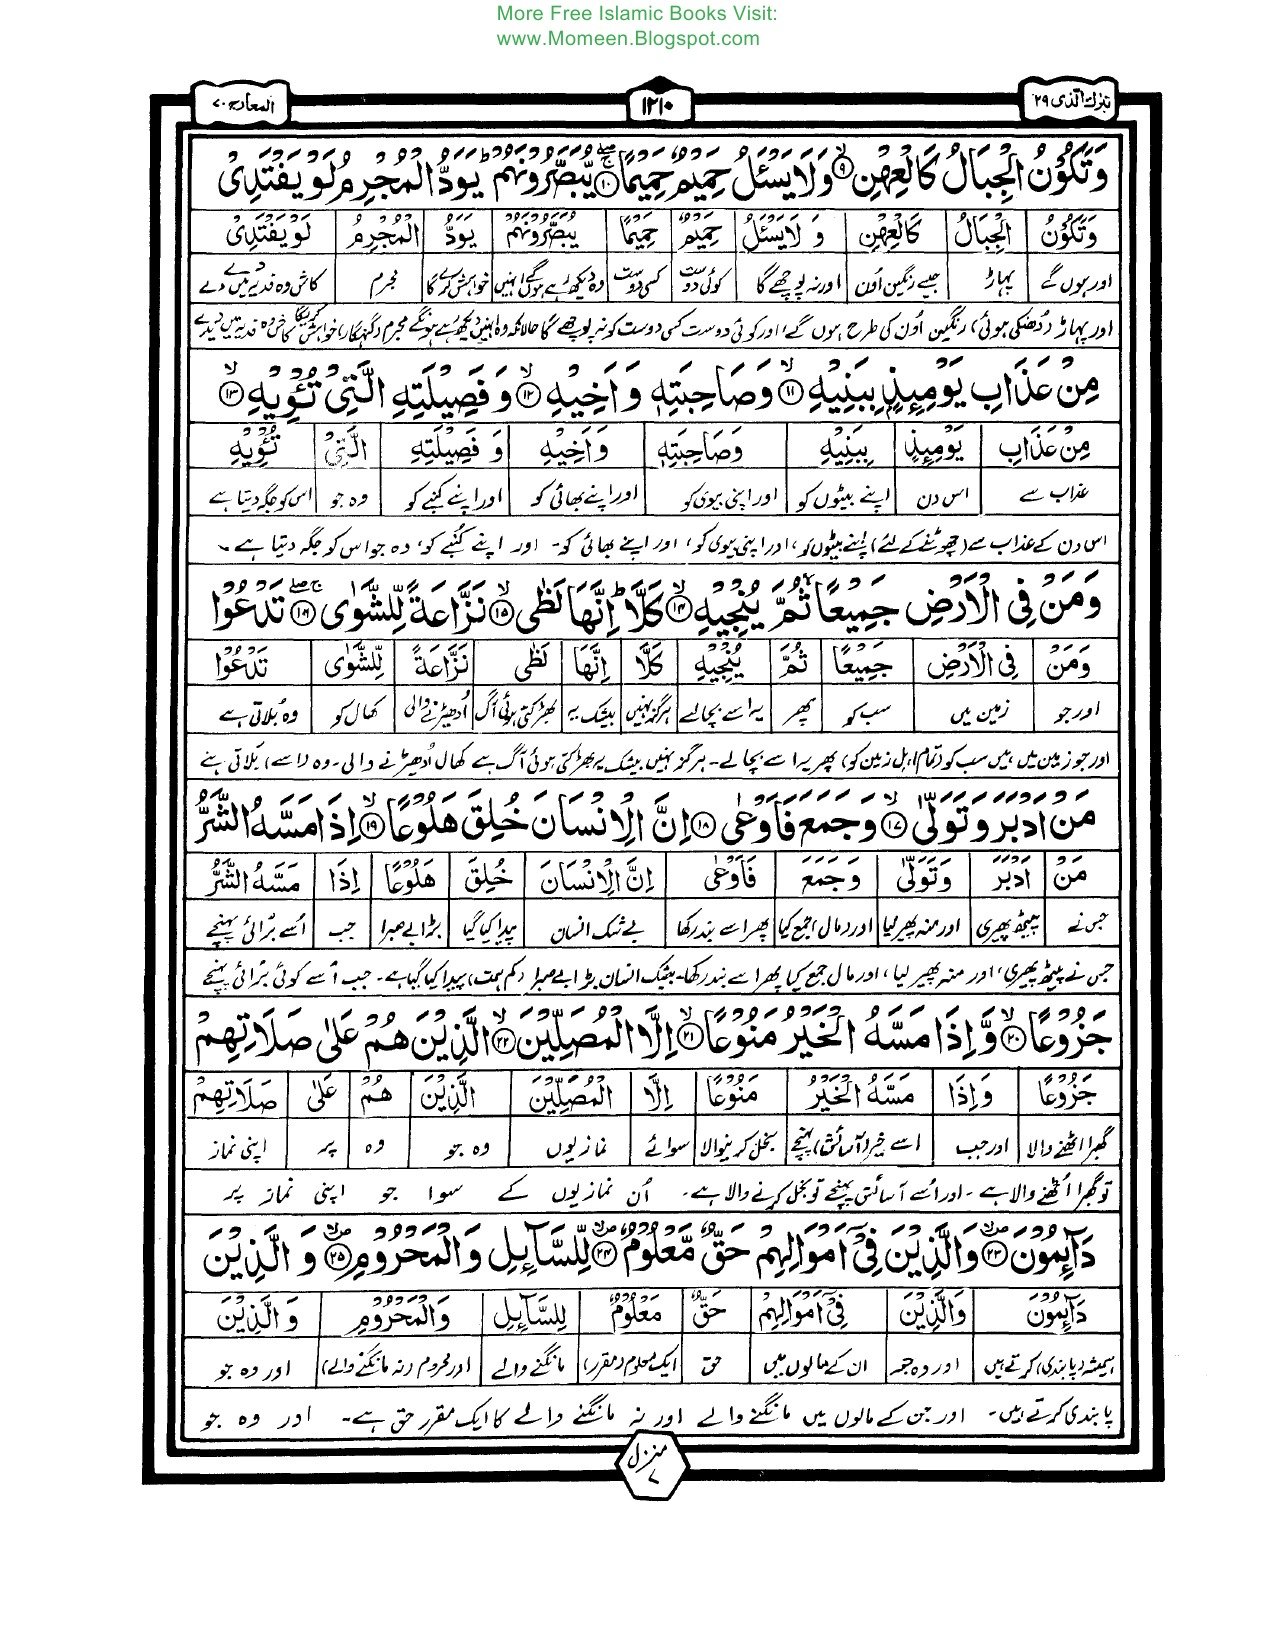 More Free Islamic Books Visit:
www.Momeen.Blogspot.com
تبٰرك الذی ۲۹
۱۲۱۰
المعارج ۷۰
وَتَكُوْنُ الْجِبَالُ كَالْعِهْنِ ۙ۹ وَلَا يَسْئَلُ حَمِيْمٌ حَمِيْمًا ۱۰ يُّبَصَّرُوْنَهُمْ ؕ يَوَدُّ الْمُجْرِمُ لَوْ يَفْتَدِىْ
وَتَكُوْنُ الْجِبَالُ كَالْعِهْنِ وَ لَا يَسْئَلُ حَمِيْمٌ حَمِيْمًا يُبَصَّرُوْنَهُمْ يَوَدُّ الْمُجْرِمُ لَوْ يَفْتَدِىْ
اور ہوں گے پہاڑ جیسے رنگین اُون اور نہ پوچھے گا کوئی دوست کسی دوست وہ دیکھ رہے ہوں گے انہیں خواہش کرے گا مجرم کاش وہ فدیہ میں دے
اور پہاڑ (دُھنکی ہوئی) رنگین اُون کی طرح ہوں گے، اور کوئی دوست کسی دوست کو نہ پوچھے گا حالانکہ وہ انہیں دیکھ رہے ہونگے مجرم (گنہگار) خواہش کریگا کاش وہ فدیہ میں دیدے
مِنْ عَذَابِ يَوْمِئِذٍۢ بِبَنِيْهِ ۙ۱۱ وَصَاحِبَتِهٖ وَاَخِيْهِ ۙ۱۲ وَفَصِيْلَتِهِ الَّتِىْ تُؤْوِيْهِ ۙ۱۳
مِنْ عَذَابِ يَوْمِئِذٍ بِبَنِيْهِ وَصَاحِبَتِهٖ وَاَخِيْهِ وَ فَصِيْلَتِهِ الَّتِىْ تُؤْوِيْهِ
عذاب سے اس دن اپنے بیٹوں کو اور اپنی بیوی کو اور اپنے بھائی کو اور اپنے کنبے کو وہ جو اس کو جگہ دیتا ہے
اس دن کے عذاب سے (چھوٹنے کے لئے) اپنے بیٹوں کو، اور اپنی بیوی کو، اور اپنے بھائی کو۔ اور اپنے کُنبے کو، وہ جو اس کو جگہ دیتا ہے۔
وَمَنْ فِى الْاَرْضِ جَمِيْعًا ۙ ثُمَّ يُنْجِيْهِ ۙ۱۴ كَلَّا ؕ اِنَّهَا لَظٰى ۙ۱۵ نَزَّاعَةً لِّلشَّوٰى ۱۶ تَدْعُوْا
وَمَنْ فِى الْاَرْضِ جَمِيْعًا ثُمَّ يُنْجِيْهِ كَلَّا اِنَّهَا لَظٰى نَزَّاعَةً لِّلشَّوٰى تَدْعُوْا
اور جو زمین میں سب کو پھر یہ اسے بچالے ہرگز نہیں بیشک یہ بھڑکتی ہوئی آگ اُدھیڑنے والی کھال کو وہ بُلاتی ہے
اور جو زمین میں ہیں سب کو (تمام اہل زمین کو) پھر یہ اسے بچالے۔ ہرگز نہیں بیشک یہ بھڑکتی ہوئی آگ ہے کھال اُدھیڑنے والی۔ وہ (اسے) بُلاتی ہے
مَنْ اَدْبَرَ وَتَوَلّٰى ۙ۱۷ وَجَمَعَ فَاَوْعٰى ۱۸ اِنَّ الْاِنْسَانَ خُلِقَ هَلُوْعًا ۙ۱۹ اِذَا مَسَّهُ الشَّرُّ
مَنْ اَدْبَرَ وَتَوَلّٰى وَجَمَعَ فَاَوْعٰى اِنَّ الْاِنْسَانَ خُلِقَ هَلُوْعًا اِذَا مَسَّهُ الشَّرُّ
جس نے پیٹھ پھیری اور منہ پھیر لیا اور (مال) جمع کیا پھر اسے بند رکھا بے شک انسان پیدا کیا گیا بڑا بے صبرا جب اُسے بُرائی پہنچے
جس نے پیٹھ پھیری، اور منہ پھیر لیا، اور مال جمع کیا پھر اسے بند رکھا۔ بیشک انسان بڑا بے صبرا (کم ہمت) پیدا کیا گیا ہے۔ جب اُسے کوئی بُرائی پہنچے
جَزُوْعًا ۙ۲۰ وَّاِذَا مَسَّهُ الْخَيْرُ مَنُوْعًا ۙ۲۱ اِلَّا الْمُصَلِّيْنَ ۙ۲۲ الَّذِيْنَ هُمْ عَلٰى صَلَاتِهِمْ
جَزُوْعًا وَاِذَا مَسَّهُ الْخَيْرُ مَنُوْعًا اِلَّا الْمُصَلِّيْنَ الَّذِيْنَ هُمْ عَلٰى صَلَاتِهِمْ
گھبرا اٹھنے والا اور جب اسے خیر (آسائش) پہنچے بخل کرنیوالا سوائے نمازیوں وہ جو وہ پر اپنی نماز
تو گھبرا اُٹھنے والا ہے۔ اور اُسے آسائش پہنچے تو بخل کرنے والا ہے۔ اُن نمازیوں کے سوا جو اپنی نماز پر
دَآئِمُوْنَ ۲۳ وَالَّذِيْنَ فِىْۤ اَمْوَالِهِمْ حَقٌّ مَّعْلُوْمٌ ۲۴ لِّلسَّآئِلِ وَالْمَحْرُوْمِ ۲۵ وَالَّذِيْنَ
دَآئِمُوْنَ وَالَّذِيْنَ فِىْۤ اَمْوَالِهِمْ حَقٌّ مَّعْلُوْمٌ لِلسَّآئِلِ وَالْمَحْرُوْمِ وَالَّذِيْنَ
ہمیشہ (پابندی) کرتے ہیں اور وہ جو ان کے مالوں میں حق ایک معلوم (مقرر) مانگنے والے اور محروم (نہ مانگنے والے) اور وہ جو
پابندی کرتے ہیں۔ اور جن کے مالوں میں مانگنے والے اور نہ مانگنے والے کا ایک مقرر حق ہے۔ اور وہ جو
منزل
۷